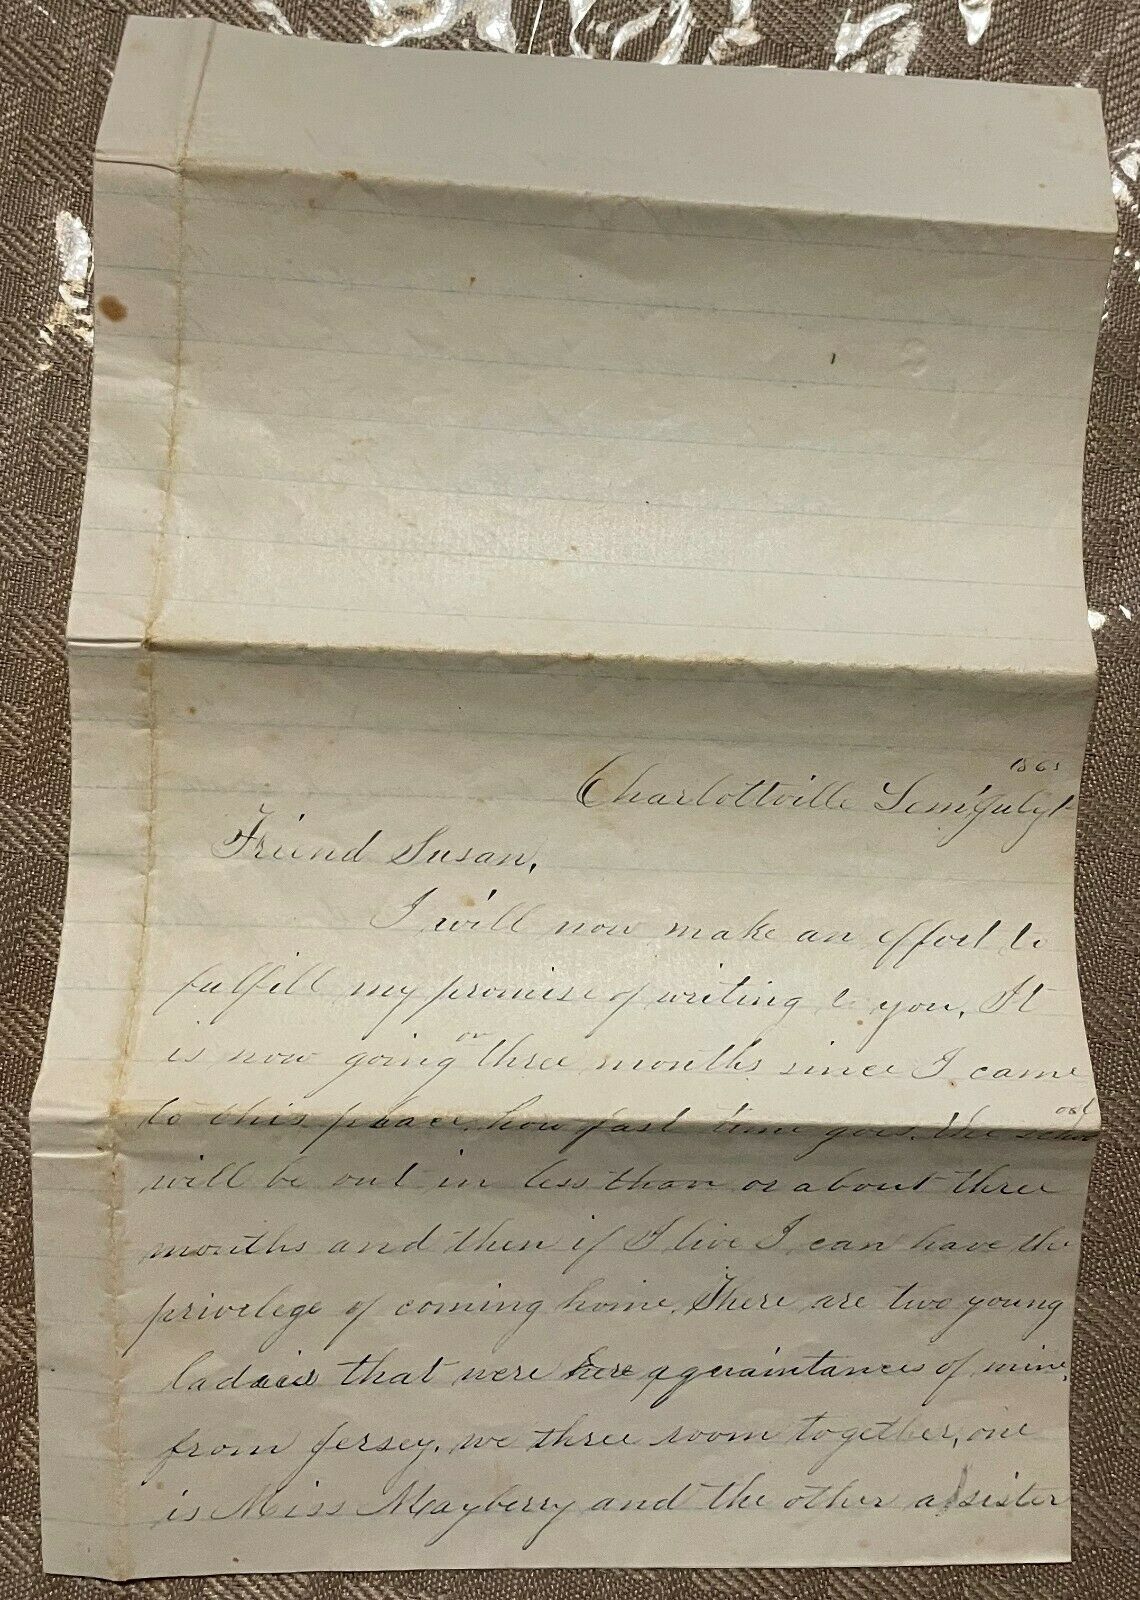 1865
Charlottville Sem'y July 1
Friend Susan,
I will now make an effort to
fulfill my promise of writing to you, It
is now going on three months since I came
to this place, how fast time goes. the school
will be out in less than or about three
months and then if I live I can have the
privelege of coming home. There are two young
ladaies that were here aquaintances of mine,
from Jersey. we three room together, one
is Miss Mayberry and the other a sister